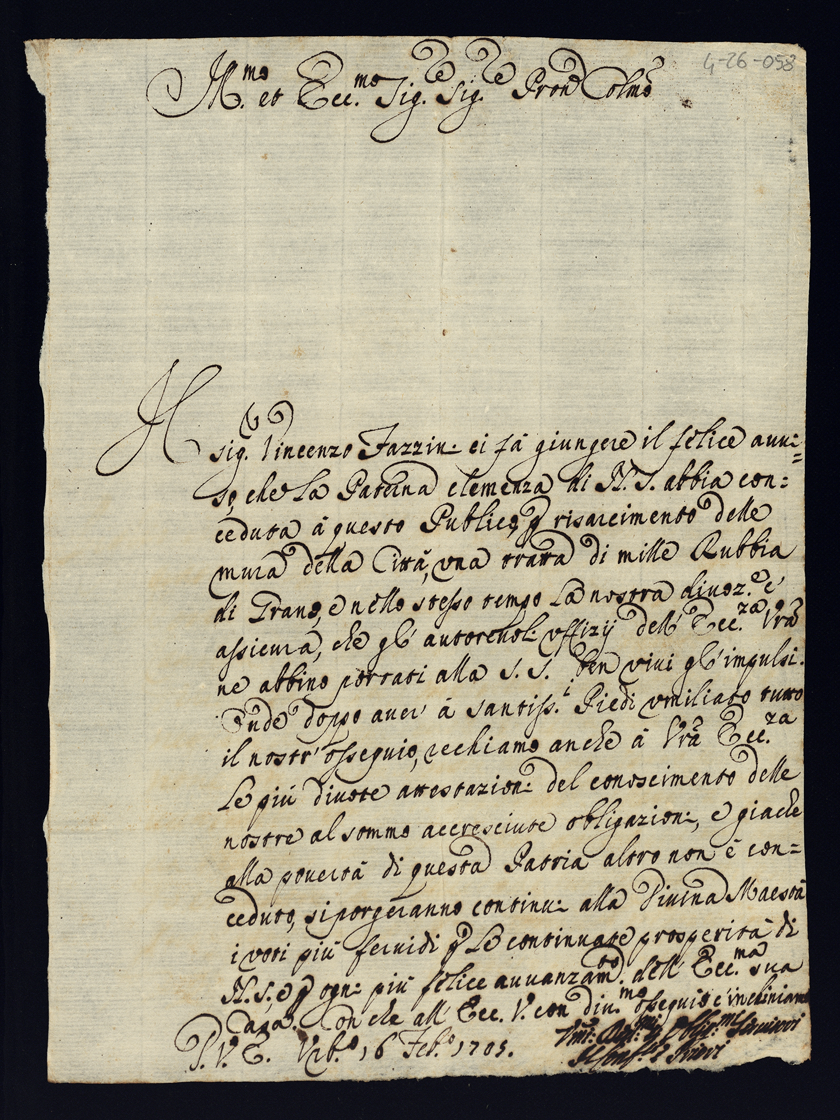 4-26-058
Ill.mo et Ecc.mo Sig.re Sig.re Pron Colmo
Il
sig.r Vincenzo Fazzin: ci fà giungere il felice auui=
so, che la Paterna clemenza di N. S. abbia con:
ceduta à questo Publico, p risarcimento delle
mura della Città, vna tratta di mille Rubbia
di Grano, e nello stesso tempo la nostra diuoz.e è
assicura, che gl' autoreuol: vffizij dell' Ecc.za Vra
ne abbino portati alla S. S. ben viui gl' impulsi.
Onde doppo auer à santiss.i Piedi vmiliato tutto
il nostr' ossequio, rechiamo anche à Vra Ecc.za
le più diuote attestazion: del conoscimento delle
nostre al sommo accresciute obligazion:, e giache
alla pouertà di questa Patria altro non è con=
ceduto, si porgeranno continu: alla Diuina Maestà
i voti più feruidi p le continuate prosperità di
N. S. e p ogn: più felice auuanzam.to dell' Ecc.ma sua
Casa. Con che all' Ecc. V. con diu.mo ossequio c' inchiniamo
D. V. E. Vrb.o 16 Feb.o 1705.
Seruitori